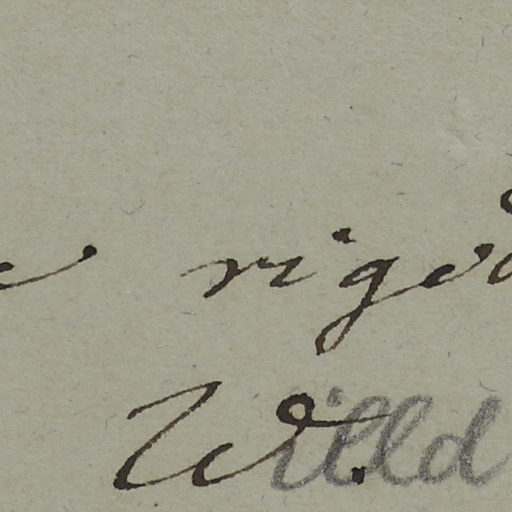 rigid
W. illd